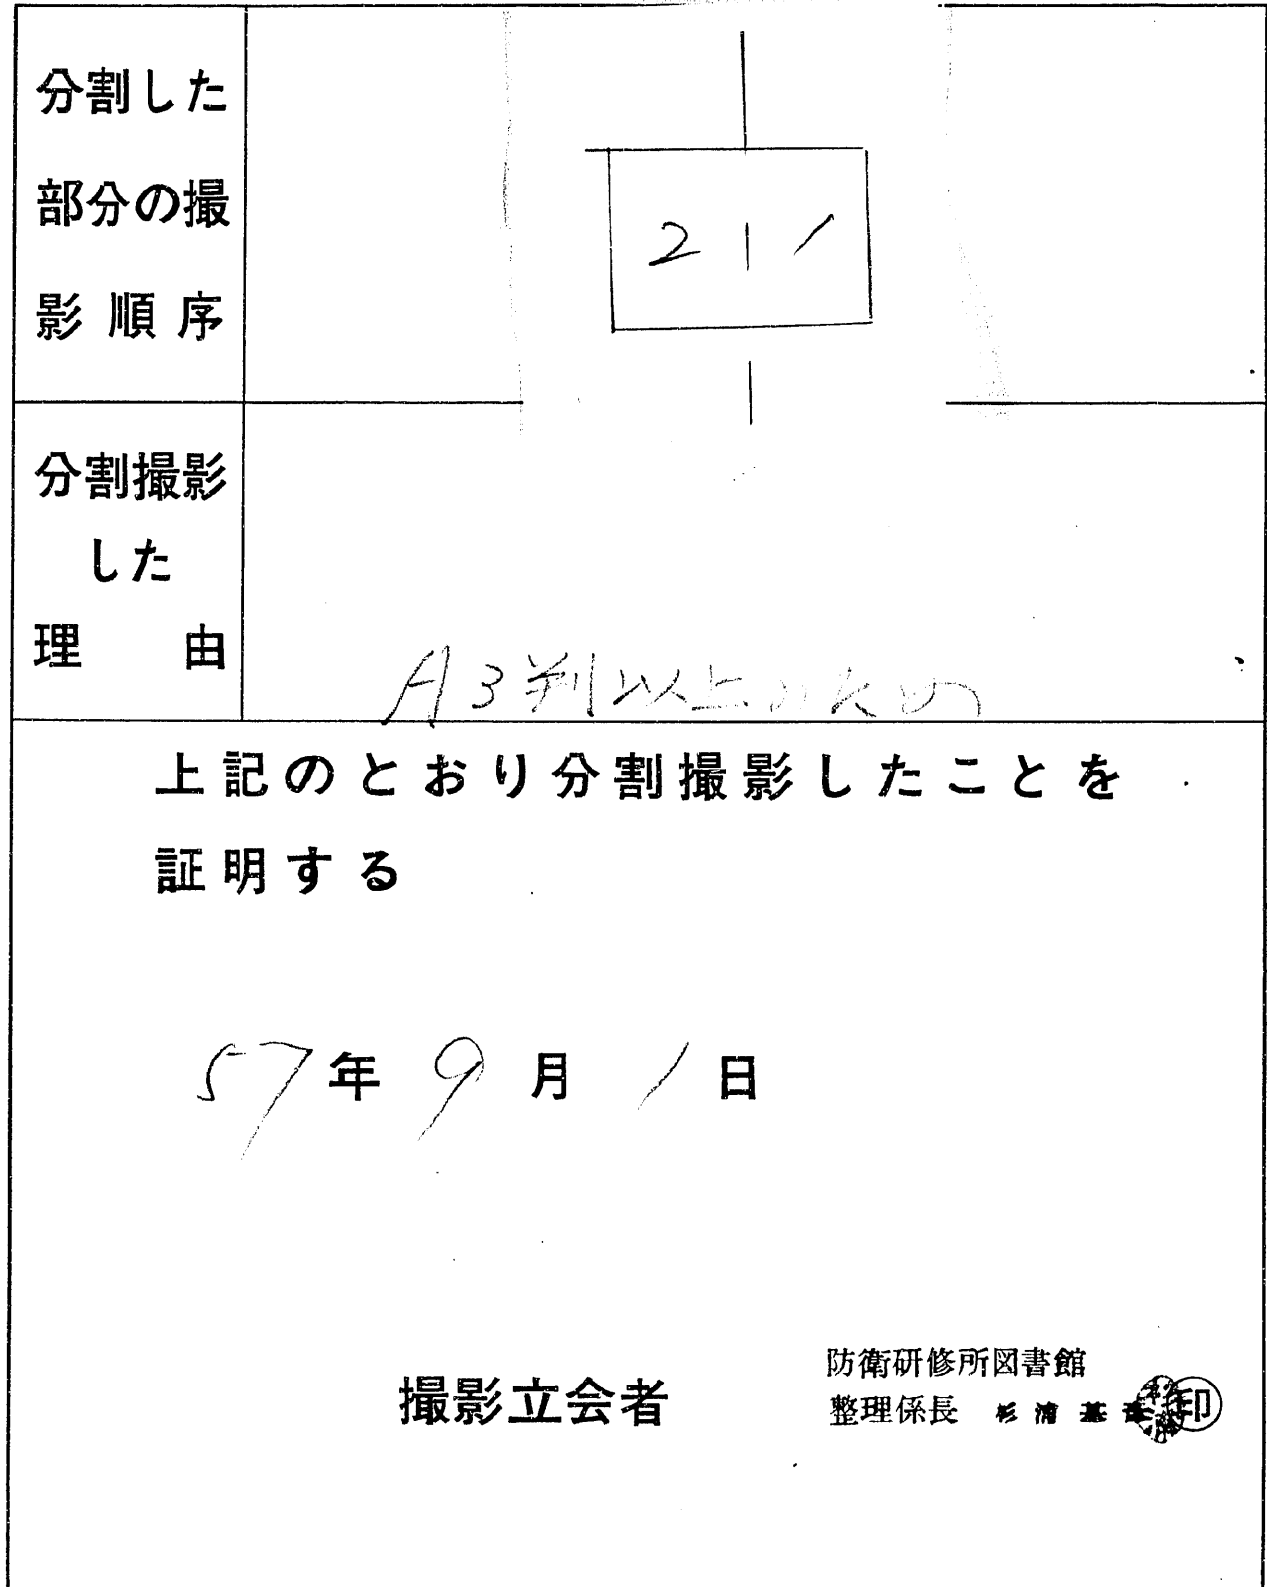 分割した
部分の撮
影順序
2 | 1
分割撮影
した
理由
A3判以上のため
上記のとおり分割撮影したことを
証明する
57年9月1日
撮影立会者
防衛研修所図書館
整理係長 杉浦基
印